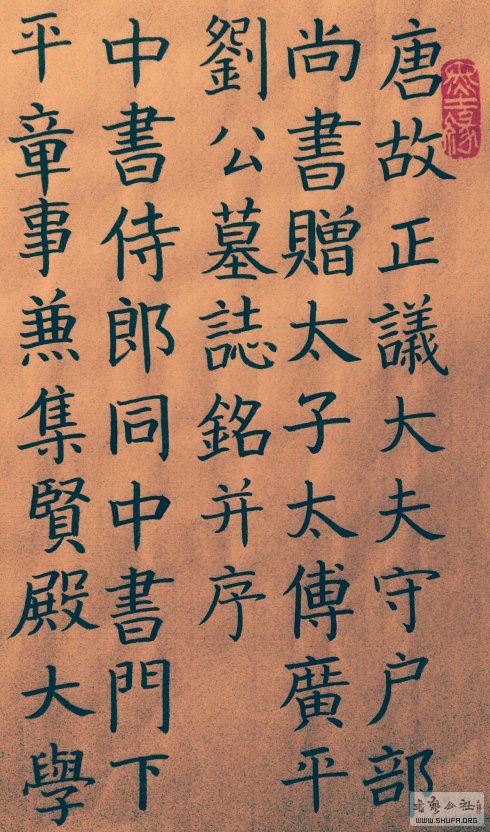 唐故正議大夫守户部
尚書贈太子太傅廣平
劉公墓誌銘并序
中書侍郎同中書門下
平章事兼集賢殿大學
WWW.SHUFA.ORG